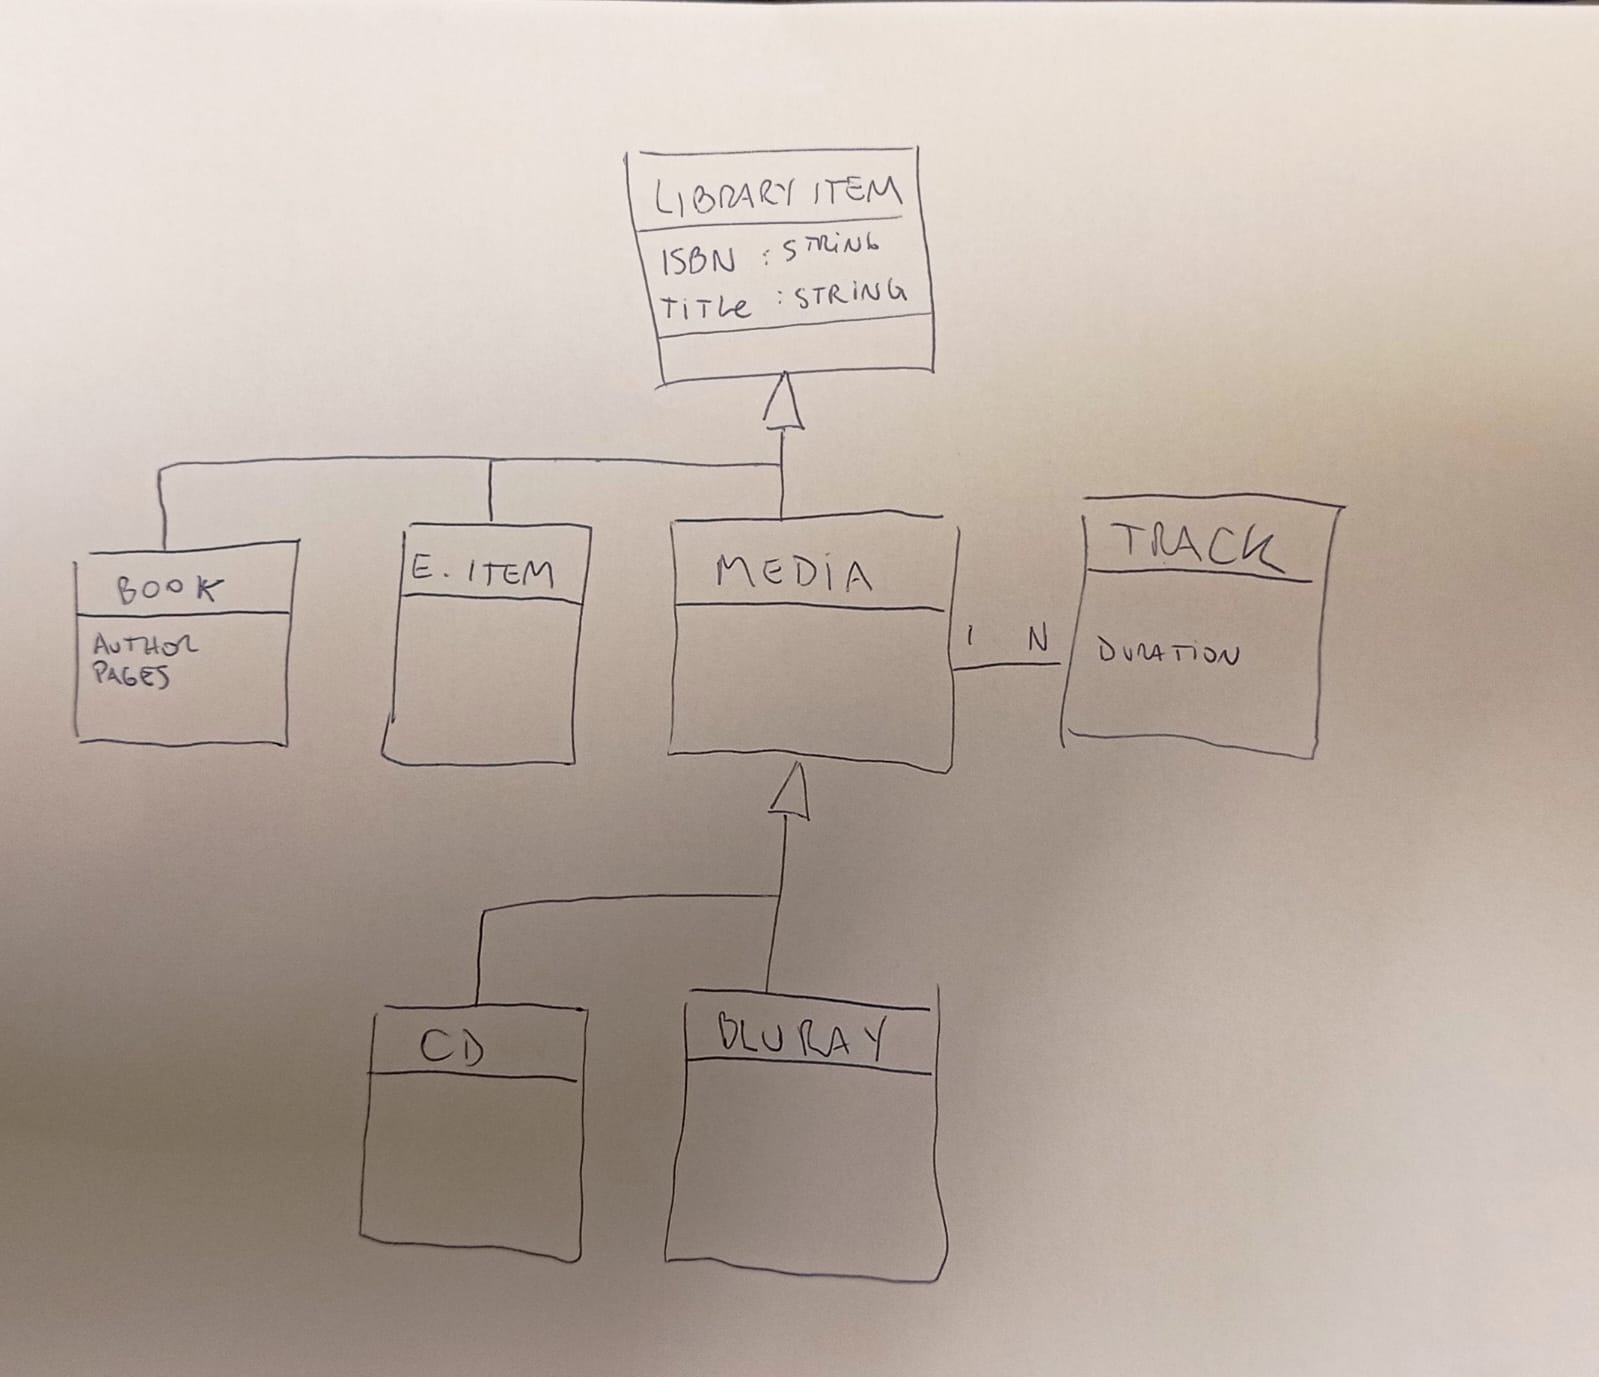 LIBRARY ITEM
ISBN : STRING
TITLE : STRING
BOOK
AUTHOR
PAGES
E. ITEM
MEDIA
1 N
TRACK
DURATION
CD
BLURAY